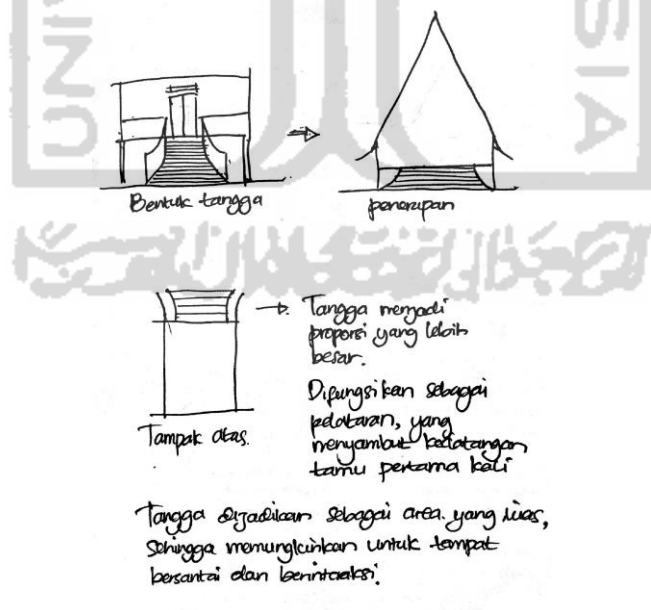 Bentuk tangga
penerapan
Tangga menjadi
proporsi yang lebih
besar.
Tampak atas.
Difungsikan sebagai
pelataran, yang
menyambut kedatangan
tamu pertama kali
Tangga dijadikan sebagai area yang luas,
sehingga memungkinkan untuk tempat
bersantai dan berinteraksi.